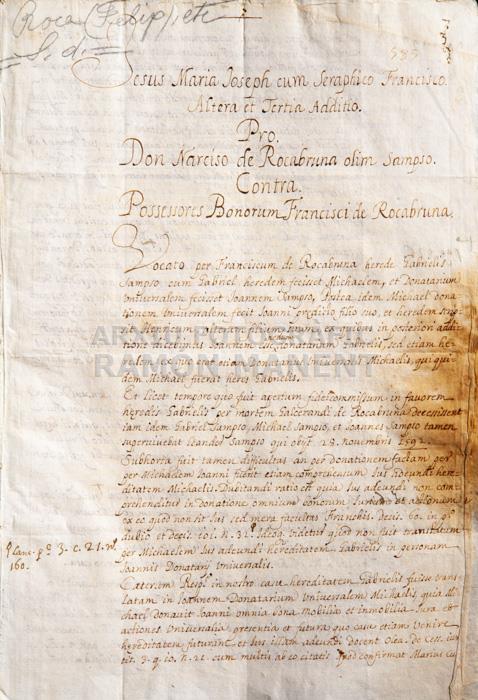 Roca (Felip) etc
S. d.
585
Jesus Maria Joseph cum Seraphico Francisco.
Altera et Tertia Additio.
Pro.
Don Narciso de Rocabruna olim Sampso.
Contra.
Possessores Bonorum Francisci de Rocabruna.
Vocato per Franciscum de Rocabruna herede Gabrielis
Sampso cum Gabriel heredem fecisset Michaelem, et Donatarium
Universalem fecisset Joannem Sampso, Postea idem Michael dona
tionem Universalem fecit Joanni filio suo, et heredem
Henricum alterum filium suum ex quibus in posteriori addi
tione Joannem donatarium Gabrielis sed etiam he
etiam Donatarius Universalis Michaelis, qui qui
dem Michael fuerat heres Gabrielis.
Et licet tempore quo fuit apertum fideicommissum in favorem
heredis Gabrielis per mortem de Rocabruna decessissent
iam idem Gabriel Sampso, Michael Sampso, et Joannes Sampso tamen
supervivebat Leander Sampso qui obijt 28. novembris 1592.
Subhorta fuit tamen difficultas an per donationem factam per
Michaelem Joanni fuerit etiam comprehensum Ius adeundi here
ditatem Michaelis. Dubitandi ratio est quia Ius adeundi non com
prehenditur in donatione omnium bonorum Iurium et actionum
ex eo quod non sit Ius sed mera facultas Franchis. Decis. 60. in pº
dubio et decis. n. 31. Ideoq. videtur quod non fuit translatum
per Michaelem Ius adeundi hereditatem Gabrielis in personam
Joannis Donatarij Universalis.
Canc. pº 3. c. 21. nº
160.
Caeterum in nostro casu hereditatem Gabrielis fuisse trans
latam in Joannem Donatarium Universalem Michaelis, quia Mi
chael donavit Joanni omnia bona mobilia et immobilia Iura et
actiones Universalia presentia et futura quo casu etiam venire
hereditatem futuram et Ius illam adeundi docent Olea de Cess. iur.
tit. 3. q. 10. n. 21. cum multis ab eo citatis. Quod confirmat Marius Cu
ARXIU PATRIMONIAL
RAMON MAMENT